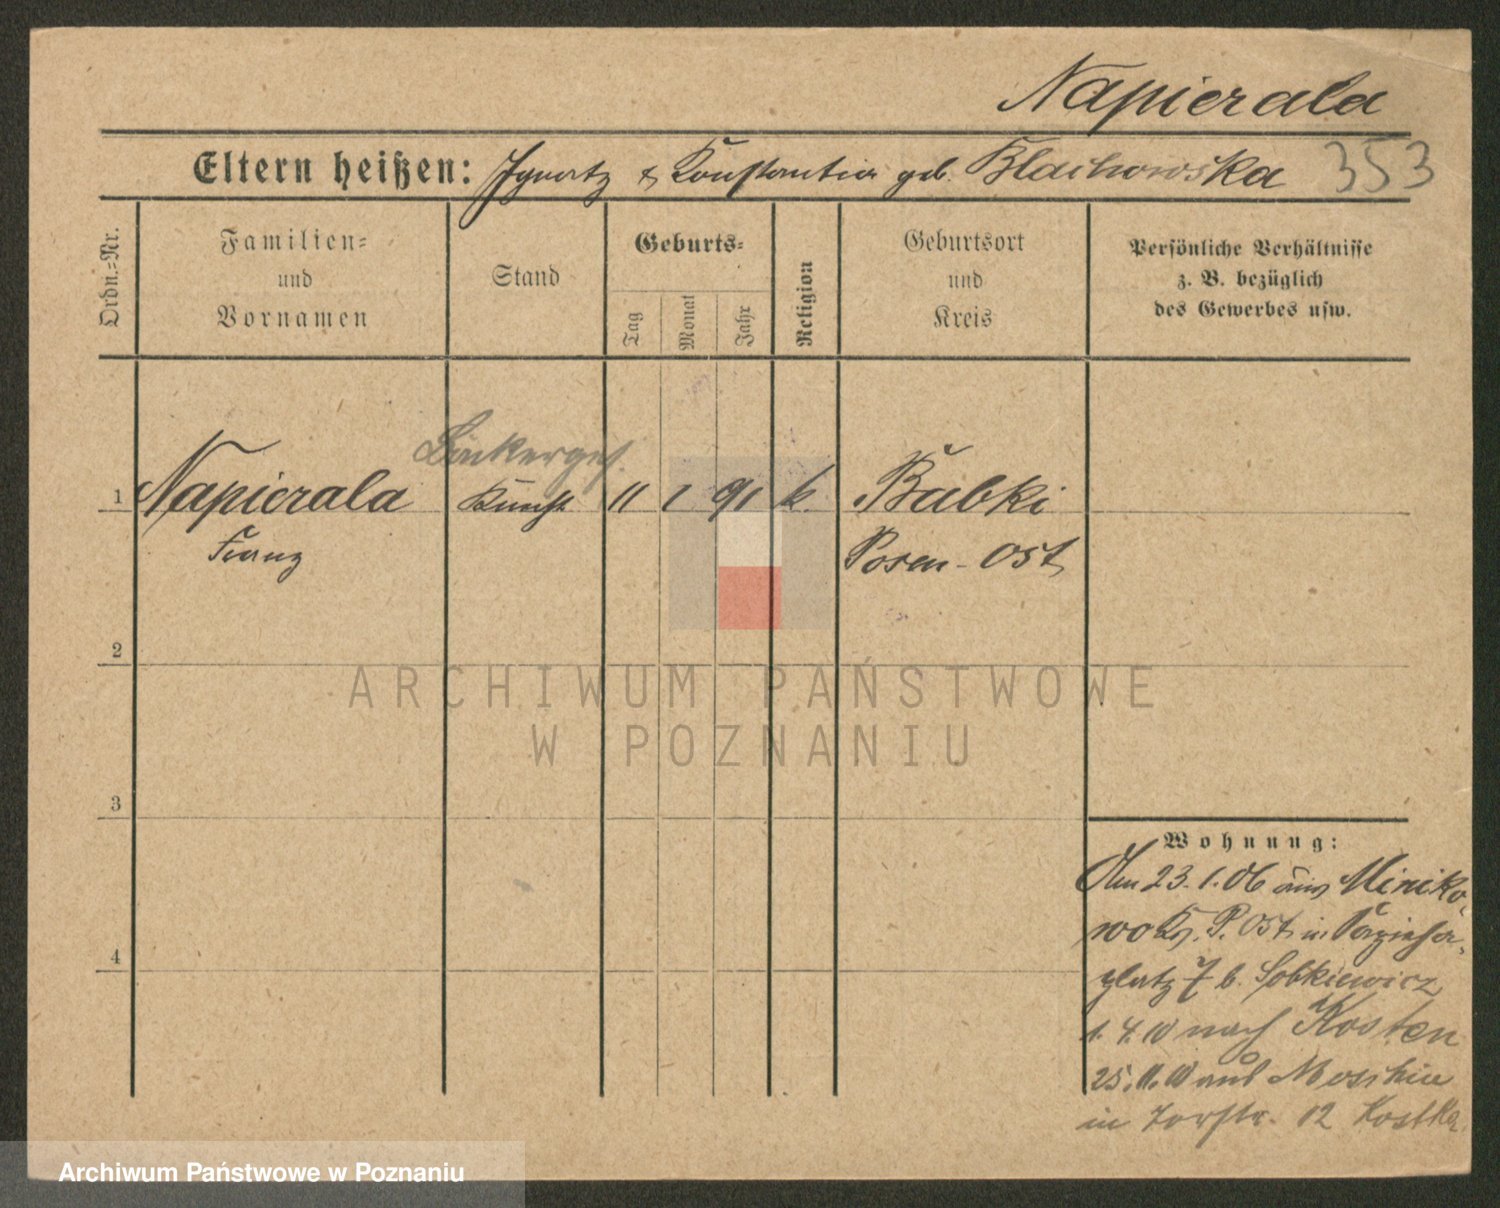 Napierala
Eltern heißen: Ignatz & Konstantia geb. Blachowska 353
Ordn.=Nr.
Familien=
und
Vornamen
Stand
Geburts=
Tag
Monat
Jahr
Religion
Geburtsort
und
Kreis
Persönliche Verhältnisse
z. B. bezüglich
des Gewerbes usw.
Bäckerges.
1 Napierala 11 1 91 k. Babki
Franz Posen-Ost
2
ARCHIWUM PAŃSTWOWE
W POZNANIU
3
4
Wohnung:
Am 23.1.06 aus Miniko-
wo Kr. P. Ost in
platz 7 b. Sobkiewicz
1.4.10 nach Kosten
25.11.10 aus Moschin
in Torstr. 12 Kostka
Archiwum Państwowe w Poznaniu